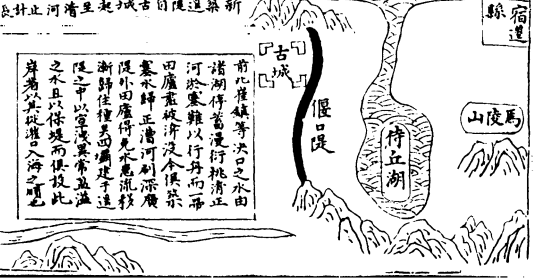 新築遥隄自古城起至清河止計長
宿遷縣
馬陵山
侍丘湖
堰口隄
古城
前此崔鎮等決口之水由
諸湖停蓄漫衍桃清正
河淤塞難以行舟而一帶
田廬盡被渰沒今俱築
塞水歸正漕河刷深廣
隄外田廬得免水患流移
漸歸住種矣四壩建于遥
隄之中以宣洩異常盈溢
之水且以保堤而俱設此
岸者以其從灌口入海之順也